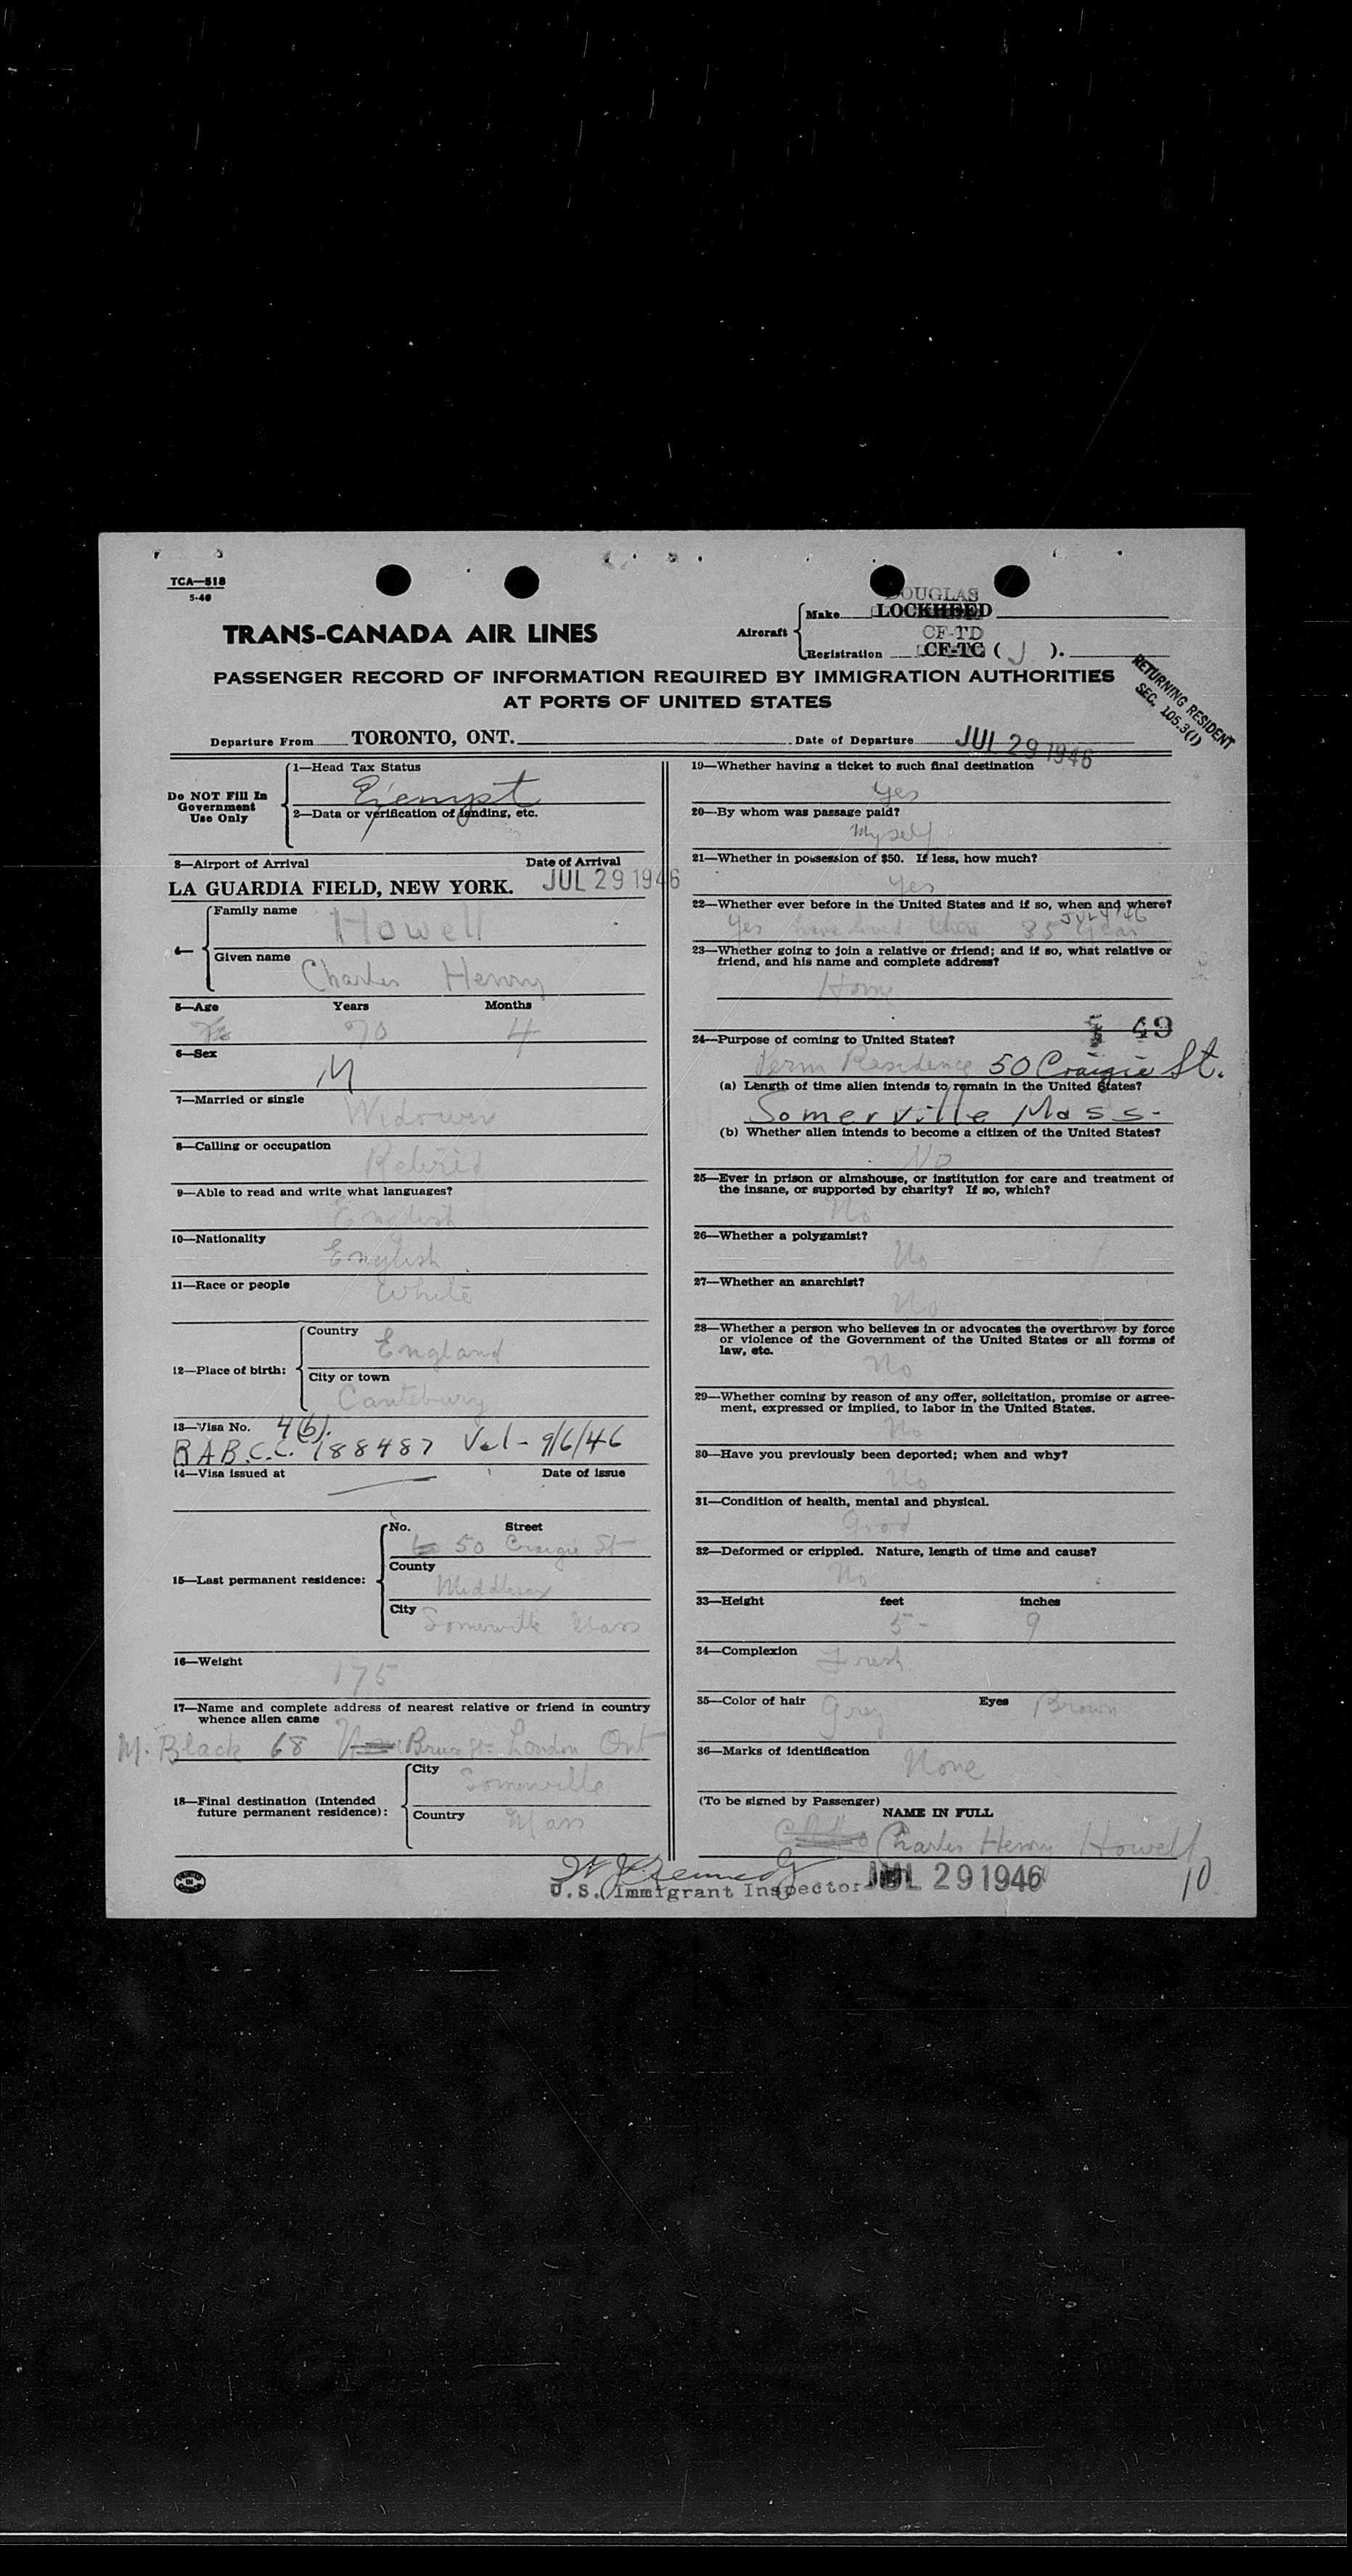 TCA—518
5-46
DOUGLAS
Make LOCKHEED
TRANS-CANADA AIR LINES
Aircraft
CF-TD
Registration CF-TC ( J ).
PASSENGER RECORD OF INFORMATION REQUIRED BY IMMIGRATION AUTHORITIES
AT PORTS OF UNITED STATES
RETURNING RESIDENT
SEC. 105.3(1)
Departure From TORONTO, ONT.
Date of Departure JUL 29 1946
Do NOT Fill In
Government
Use Only
1—Head Tax Status
Exempt
2—Data or verification of landing, etc.
3—Airport of Arrival Date of Arrival
LA GUARDIA FIELD, NEW YORK. JUL 29 1946
4—
Family name
Howell
Given name
Charles Henry
5—Age Years Months
70 4
6—Sex
M
7—Married or single
Widower
8—Calling or occupation
Retired
9—Able to read and write what languages?
English
10—Nationality
English
11—Race or people
White
12—Place of birth:
Country
England
City or town
Cantebury
13—Visa No. 4(b).
R A B.C.C. 188487 Val - 9/6/46
14—Visa issued at Date of issue
15—Last permanent residence:
No. Street
50 Craigie St
County
Middlesex
City
Somerville Mass
16—Weight
175
17—Name and complete address of nearest relative or friend in country
whence alien came
M. Black 68 Bruce St London Ont
18—Final destination (Intended
future permanent residence):
City
Somerville
Country
Mass
19—Whether having a ticket to such final destination
Yes
20—By whom was passage paid?
Myself
21—Whether in possession of $50. If less, how much?
Yes
22—Whether ever before in the United States and if so, when and where?
July '46
Yes have lived there 35 Years
23—Whether going to join a relative or friend; and if so, what relative or
friend, and his name and complete address?
Home
49
24—Purpose of coming to United States?
Perm Residence 50 Craigie St.
(a) Length of time alien intends to remain in the United States?
Somerville Mass-
(b) Whether alien intends to become a citizen of the United States?
No
25—Ever in prison or almshouse, or institution for care and treatment of
the insane, or supported by charity? If so, which?
No
26—Whether a polygamist?
No
27—Whether an anarchist?
No
28—Whether a person who believes in or advocates the overthrow by force
or violence of the Government of the United States or all forms of
law, etc.
No
29—Whether coming by reason of any offer, solicitation, promise or agree-
ment, expressed or implied, to labor in the United States.
No
30—Have you previously been deported; when and why?
No
31—Condition of health, mental and physical.
Good
32—Deformed or crippled. Nature, length of time and cause?
No
33—Height feet inches
5- 9
34—Complexion Fresh
35—Color of hair Grey Eyes Brown
36—Marks of identification
None
(To be signed by Passenger)
NAME IN FULL
Charles Henry Howell
U.S. Immigrant Inspector JUL 29 1946
10